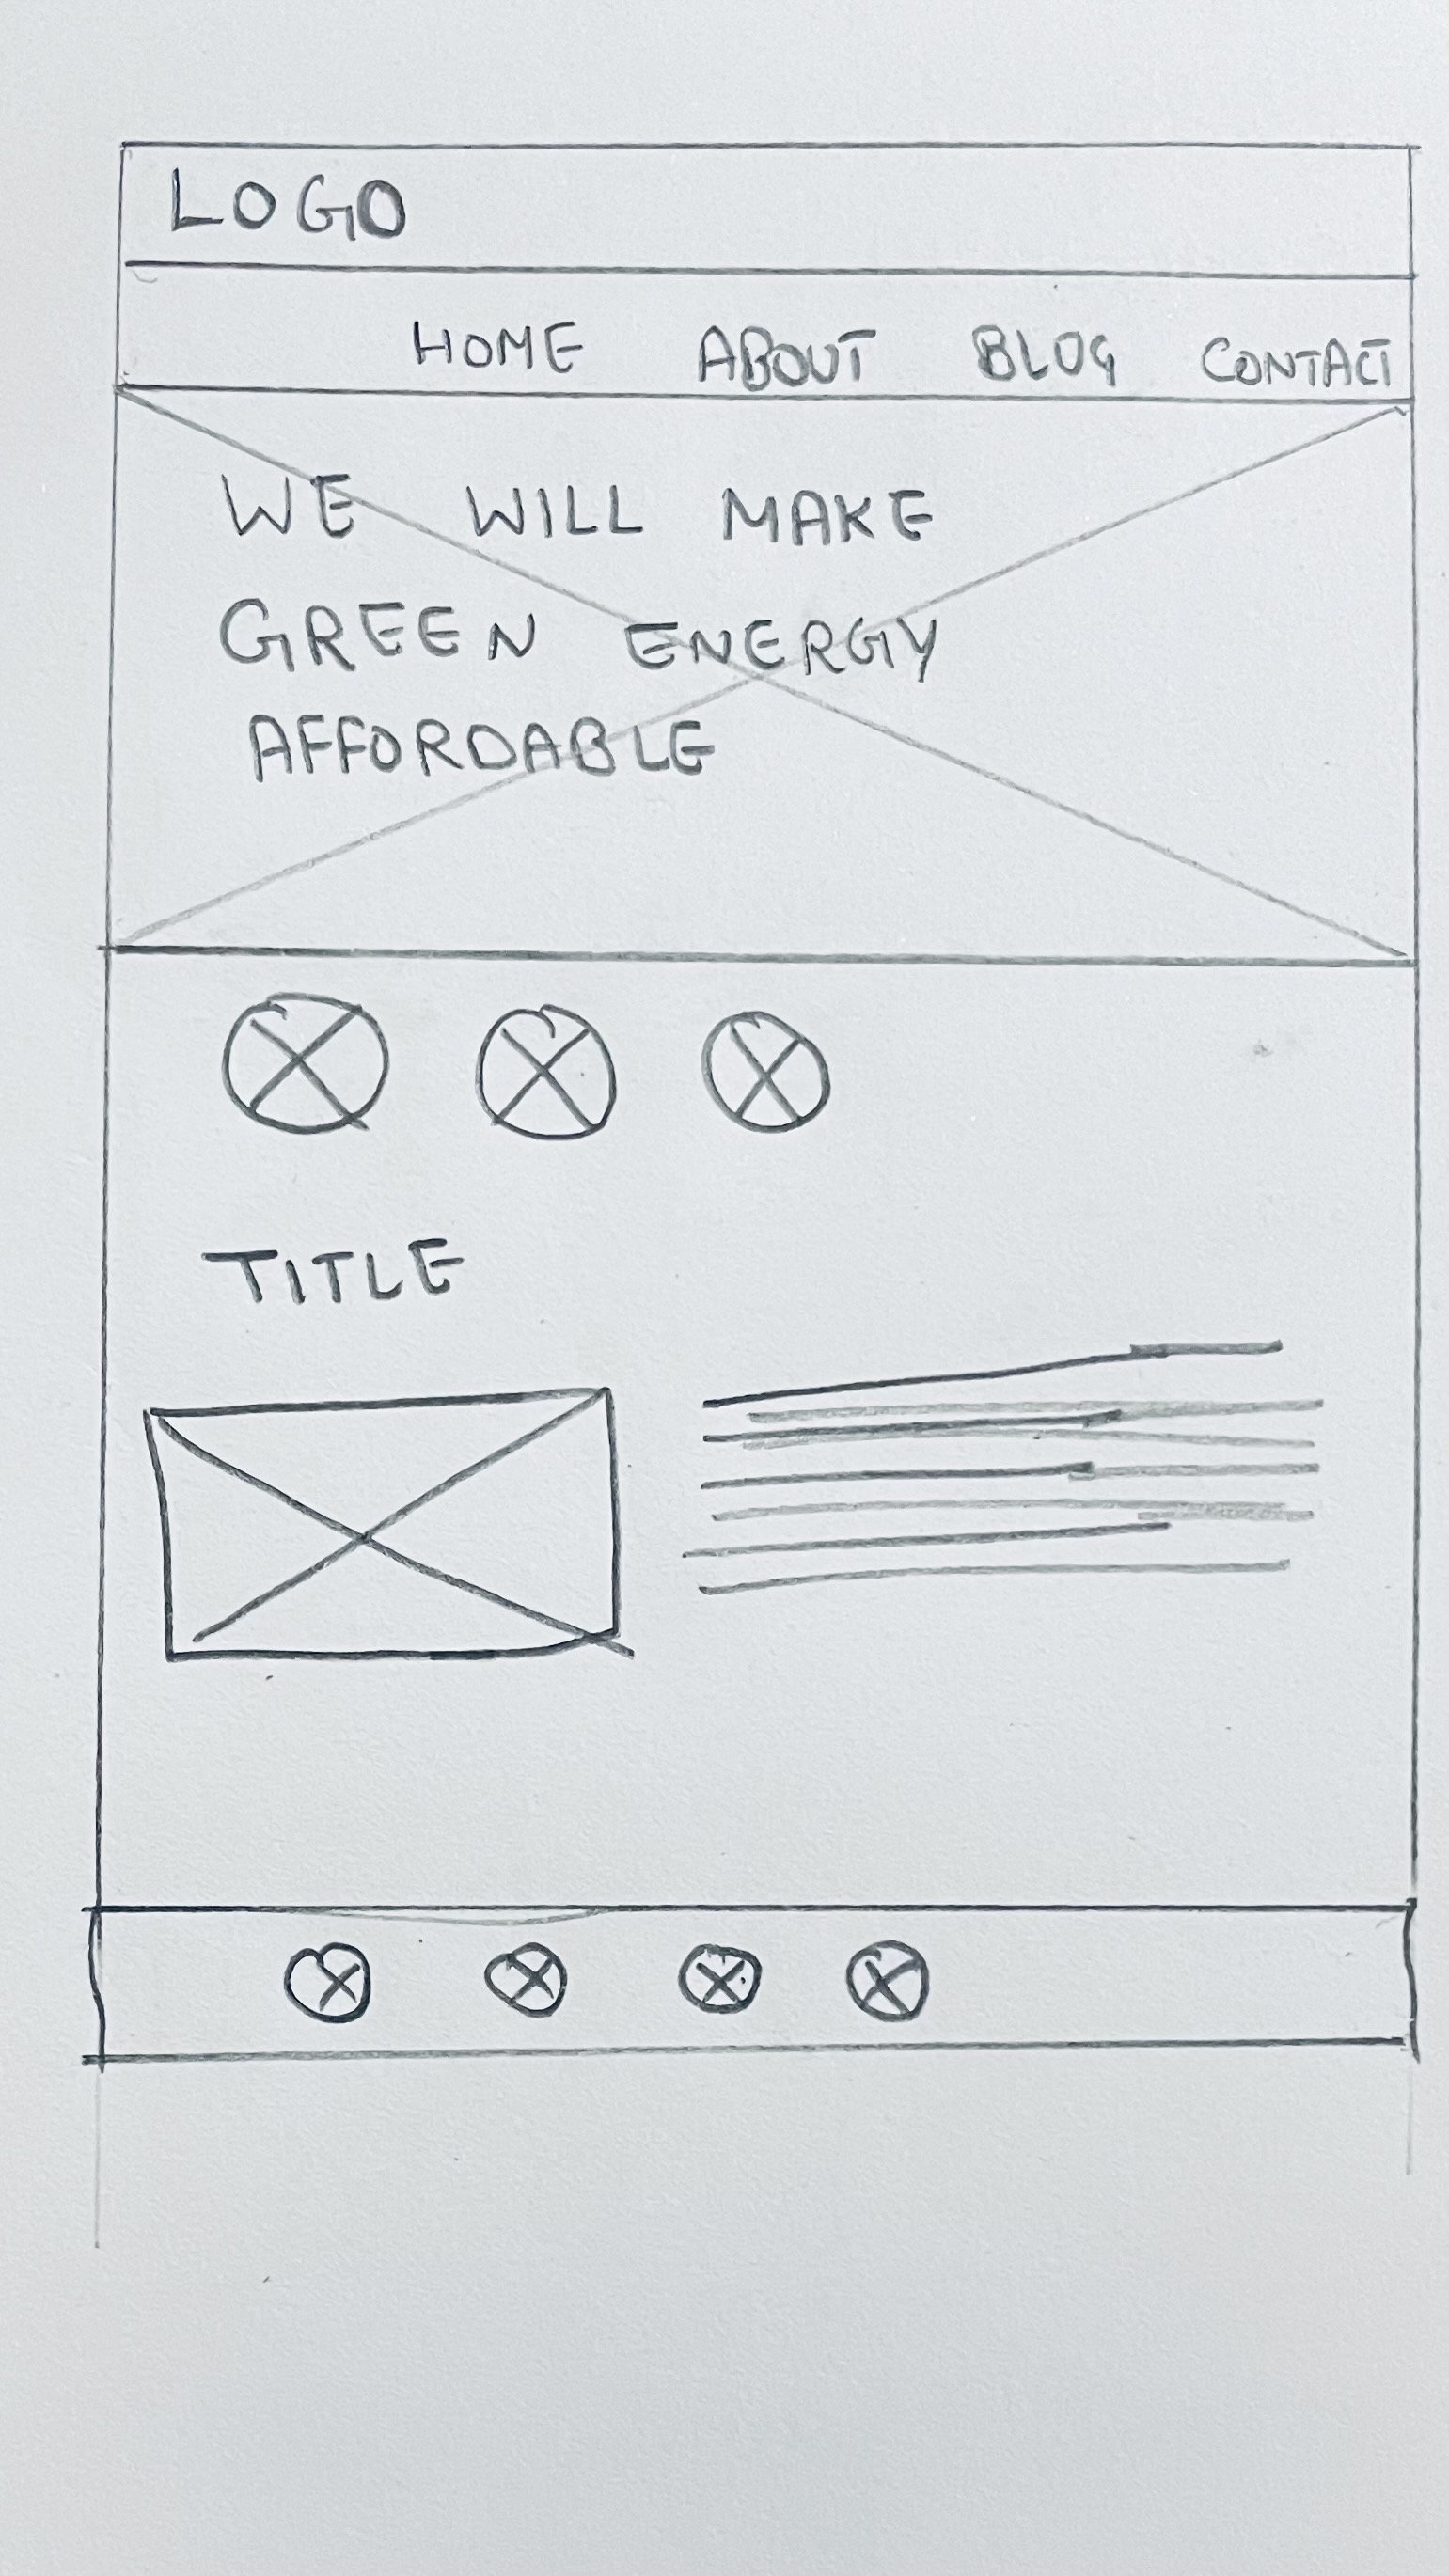 LOGO
HOME ABOUT BLOG CONTACT
WE WILL MAKE
GREEN ENERGY
AFFORDABLE
TITLE